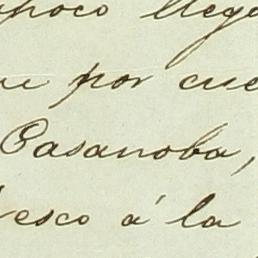 poco llega
por cue
Casanoba,
esco á la